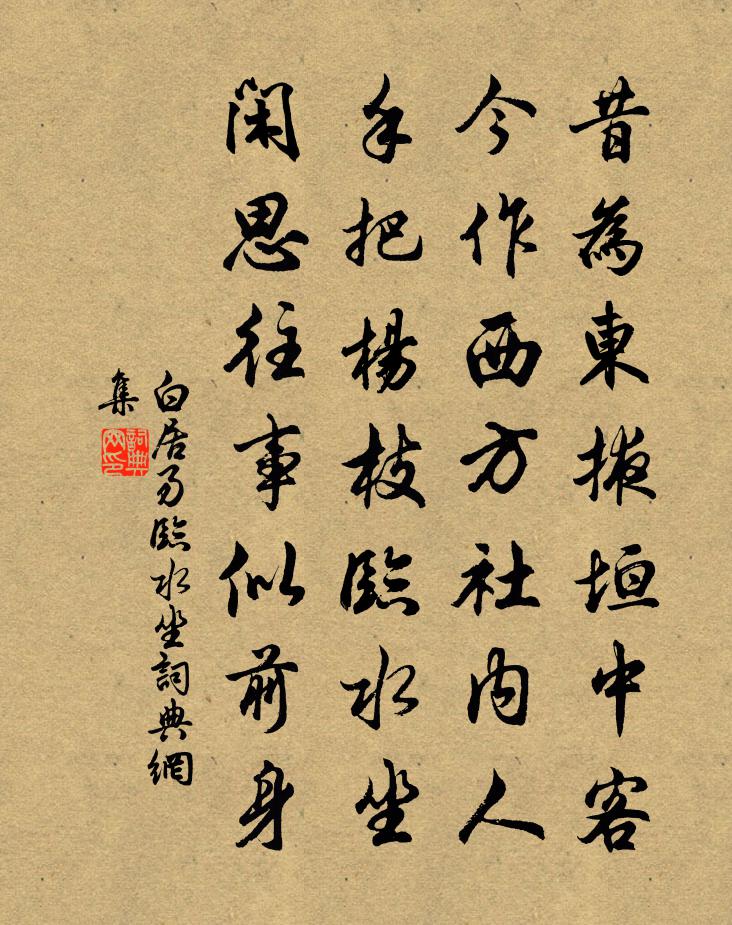 昔為東掖垣中客
今作西方社内人
手把楊枝臨水坐
閑思往事似前身
白居易臨水坐詞典網
集
詞典網印